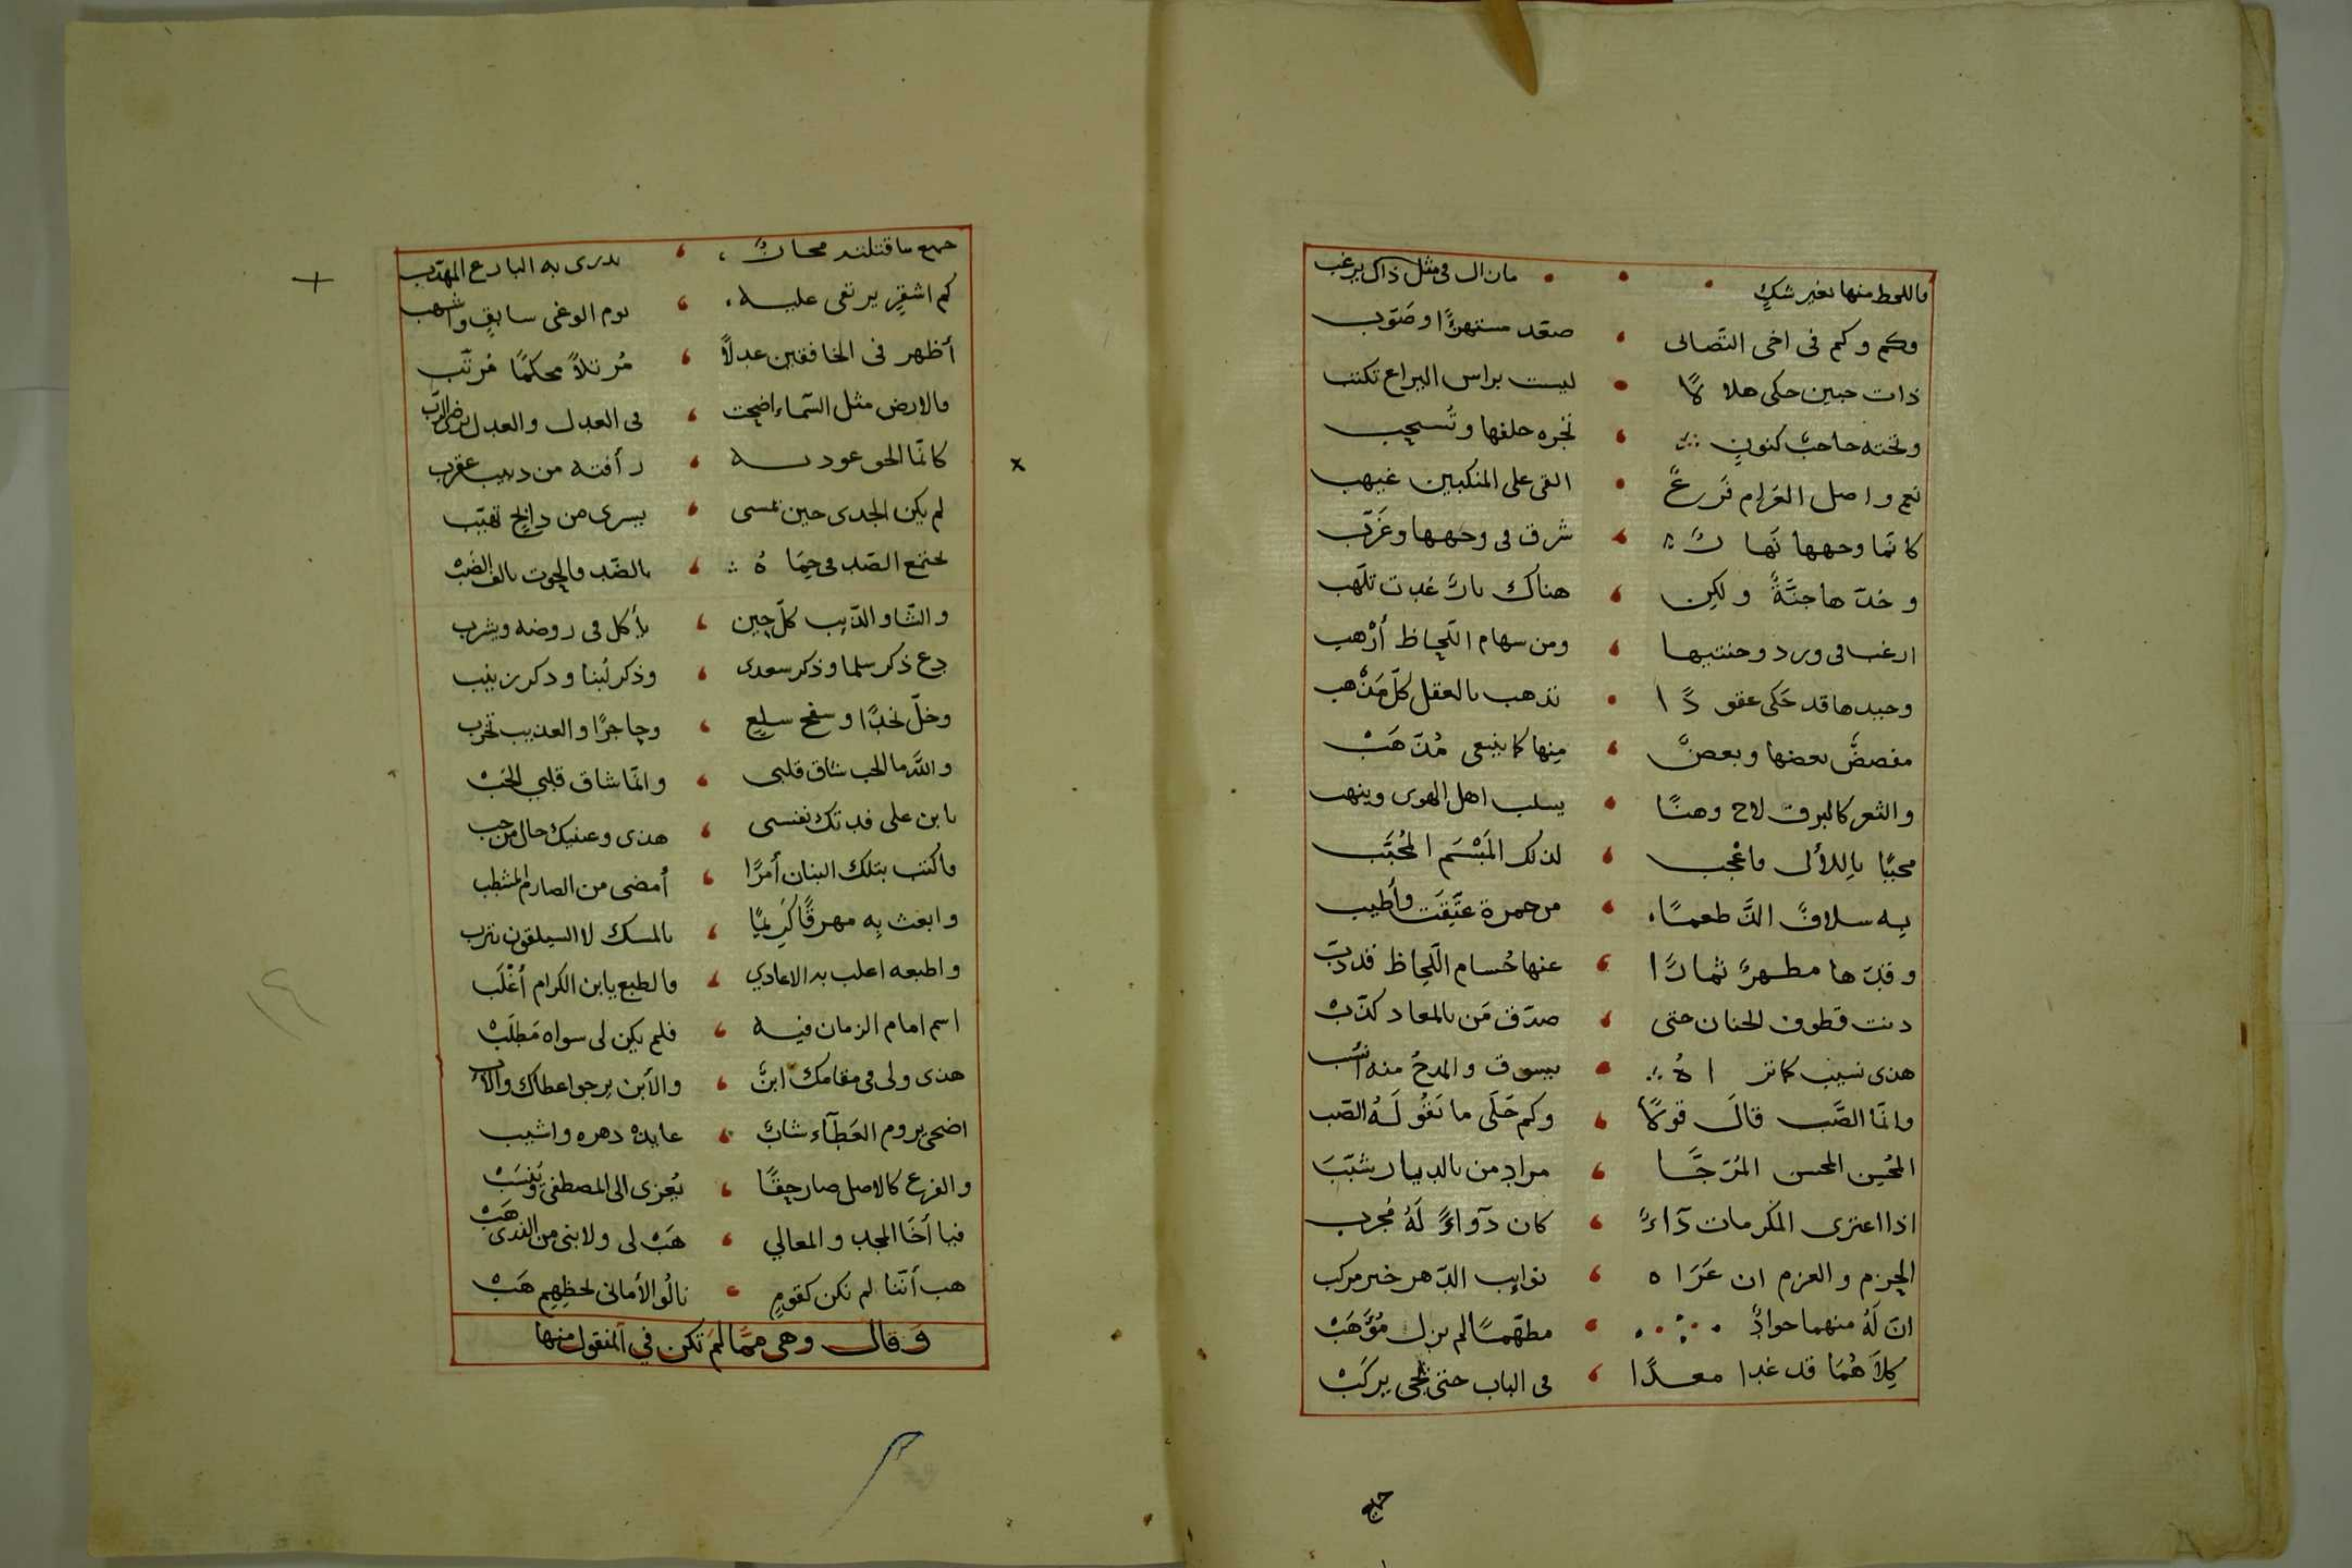 فاللحظ منها بغير شكٍ مازال في مثل ذاك يرغب
وكم وكم في اخى التصابى صعّد مستهزئًا وصَوّب
ذات جبين حكى هلالاً ليست براس اليراع تكتب
وتحته حاجبٌ كنونٍ تجره خلفها وتُسحب
نعم واصل الغرام فَرعٌ القى على المنكبين غيهب
كانّما وجهها نَهارٌ شرق في وجهها وغَرّب
وخدّها جنّةٌ ولكن هناك نارٌ غدت تلهّب
ارغب في ورد وجنتيها ومن سهام اللّحاظ أرْهب
وجيدها قد حَكى عقودًا تذهب بالعقل كلّ مَذْهب
مفضضٌ بعضها وبعضٌ مِنها كما ينبغي مُذَهّبْ
والثغر كالبرق لاح وهنًا يسلب اهل الهوى وينهب
محببًا باللألى فاعْجب لذلك المَبْسَم المُحبَّب
به سلافٌ الذّ طعمًا من خمرة عتِّقَت وأطيب
وقدّها مطهرٌ ثمارًا عنها حُسام اللّحاظ قد ذبّ
دنت قطوف الجنان حتى صدّق مَن بالمعاد كذّبْ
هذى نسيب كما تراهُ يسوق والمدحُ منه أنسب
وانّما الصّب قالَ قولاً وكم حَلَى ما تقُولَهُ الصّب
المحُسِن المحسن المُرَجَّا مرادِ من بالديار شبّبَ
اذا اعترى المكرمات دآءٌ كان دوآءً لَهُ مُجرب
الحزم والعزم ان عَرَاه نوايب الدّهر خير مركب
انّ لَهُ منهما جوادٌ مطهّمًا لم يزل مُؤَهَبْ
كِلاَهُمَا قد غدا معدًا في الباب حتى يجى يركَبْ
جميع
جميع ما قتلته مجازٌ يدرى به البارع المهذب
كم اشقرٍ يرتقى عليه يوم الوغى سابقٍ واشهب
أظهر في الخافقين عدلاً مُرتلاً محكمًا مُرتّب
فالارض مثل السّماء اضحت في العدل والعدل
كانّما الحو رأفته من دبيب عقرب
لم يكن الجدى حين تمسى يسرى من ذابح تهيّب
يجتمع الضّد في حِمَاهُ بالضّد والحوت
والشّاو الذّيب كلّ حِين يأكل في روضه ويشرب
دع ذكر سلما وذكر سعدى وذكر لُبنا وذكر زينب
وخلّ نجدًا وسفح سلعٍ وحاجرًا والعذيب تخرب
واللهِ ما الحب شاق قلبى وانّما شاق قلبي الحَبْ
يا بن على فدتك نفسى هذى وعينيك حال من حب
فاكتب بتلك البنان أمرًا أمضى من الصارم المشطب
وابعث بِه مهرقًا كَرِيمًا بالمسك لا السيلقون يترب
واطبعه اغلب به الاعادي فالطبع يا بن الكرام أغْلَب
اسم امام الزمان فيه فلم يكن لى سواه مَطلَبْ
هذى ولى في مقامك ابنٌ والأبن يرجوا عطاك والأب
اضحى يروم العَطَآء شابٌ عايده دهره واشيب
والفرع كالاصل صار حِقًا يُعزى الى المصطفى ويُنسَبْ
فيا أخَا المجد والمعالي هَبْ لى ولابنى من الندى هَبْ
هب أنّنا لم نكن كقومٍ نالُوا الأمانى لحظِهِم هَبْ
وَقال وهى ممَّا لمَ تكن في المنقول منها